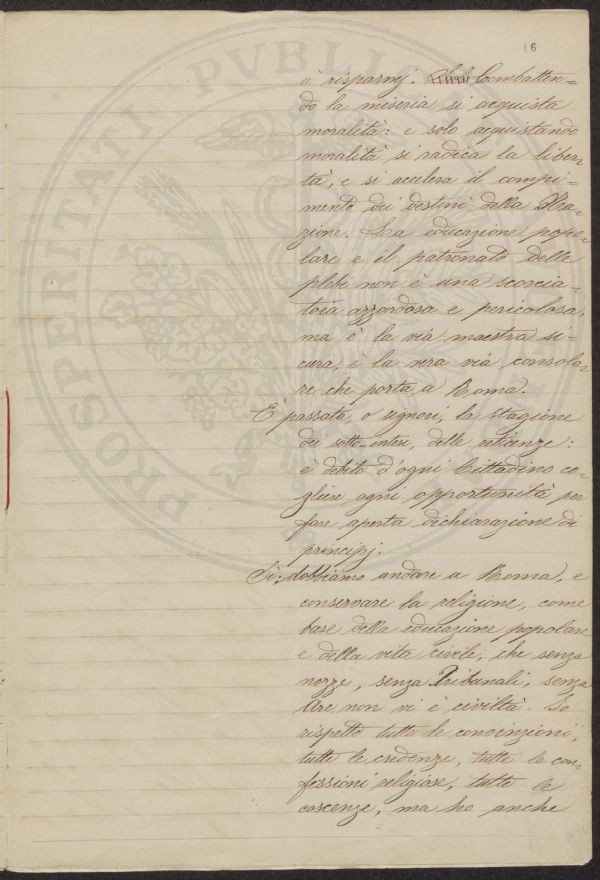 16
à risparmj. Combatten=
do la miseria si acquista
moralità: e solo acquistando
moralità si radica la liber
tà, e si accelera il compi=
mento dei destini della Na
zione. La educazione popo
lare e il patronato delle
plebi non è una scorcia=
toia azzardosa e pericolosa,
ma è la via maestra si=
cura, è la vera via consola
re che porta a Roma.
È passata, o signori, la stagione
dei sotto-intesi, delle reticenze:
è debito d'ogni Cittadino co
gliere ogni opportunità per
fare aperta dichiarazione di
principj.
Sì; dobbiamo andare a Roma, e
conservare la religione, come
base della educazione popolare
e della vita civile, che senza
nozze, senza Tribunali, senza
Are, non vi è civiltà. Io
rispetto tutte le convinzioni,
tutte le credenze, tutte le con
fessioni religiose, tutte le
coscenze, ma ho anche
PROSPERITATI PVBLI